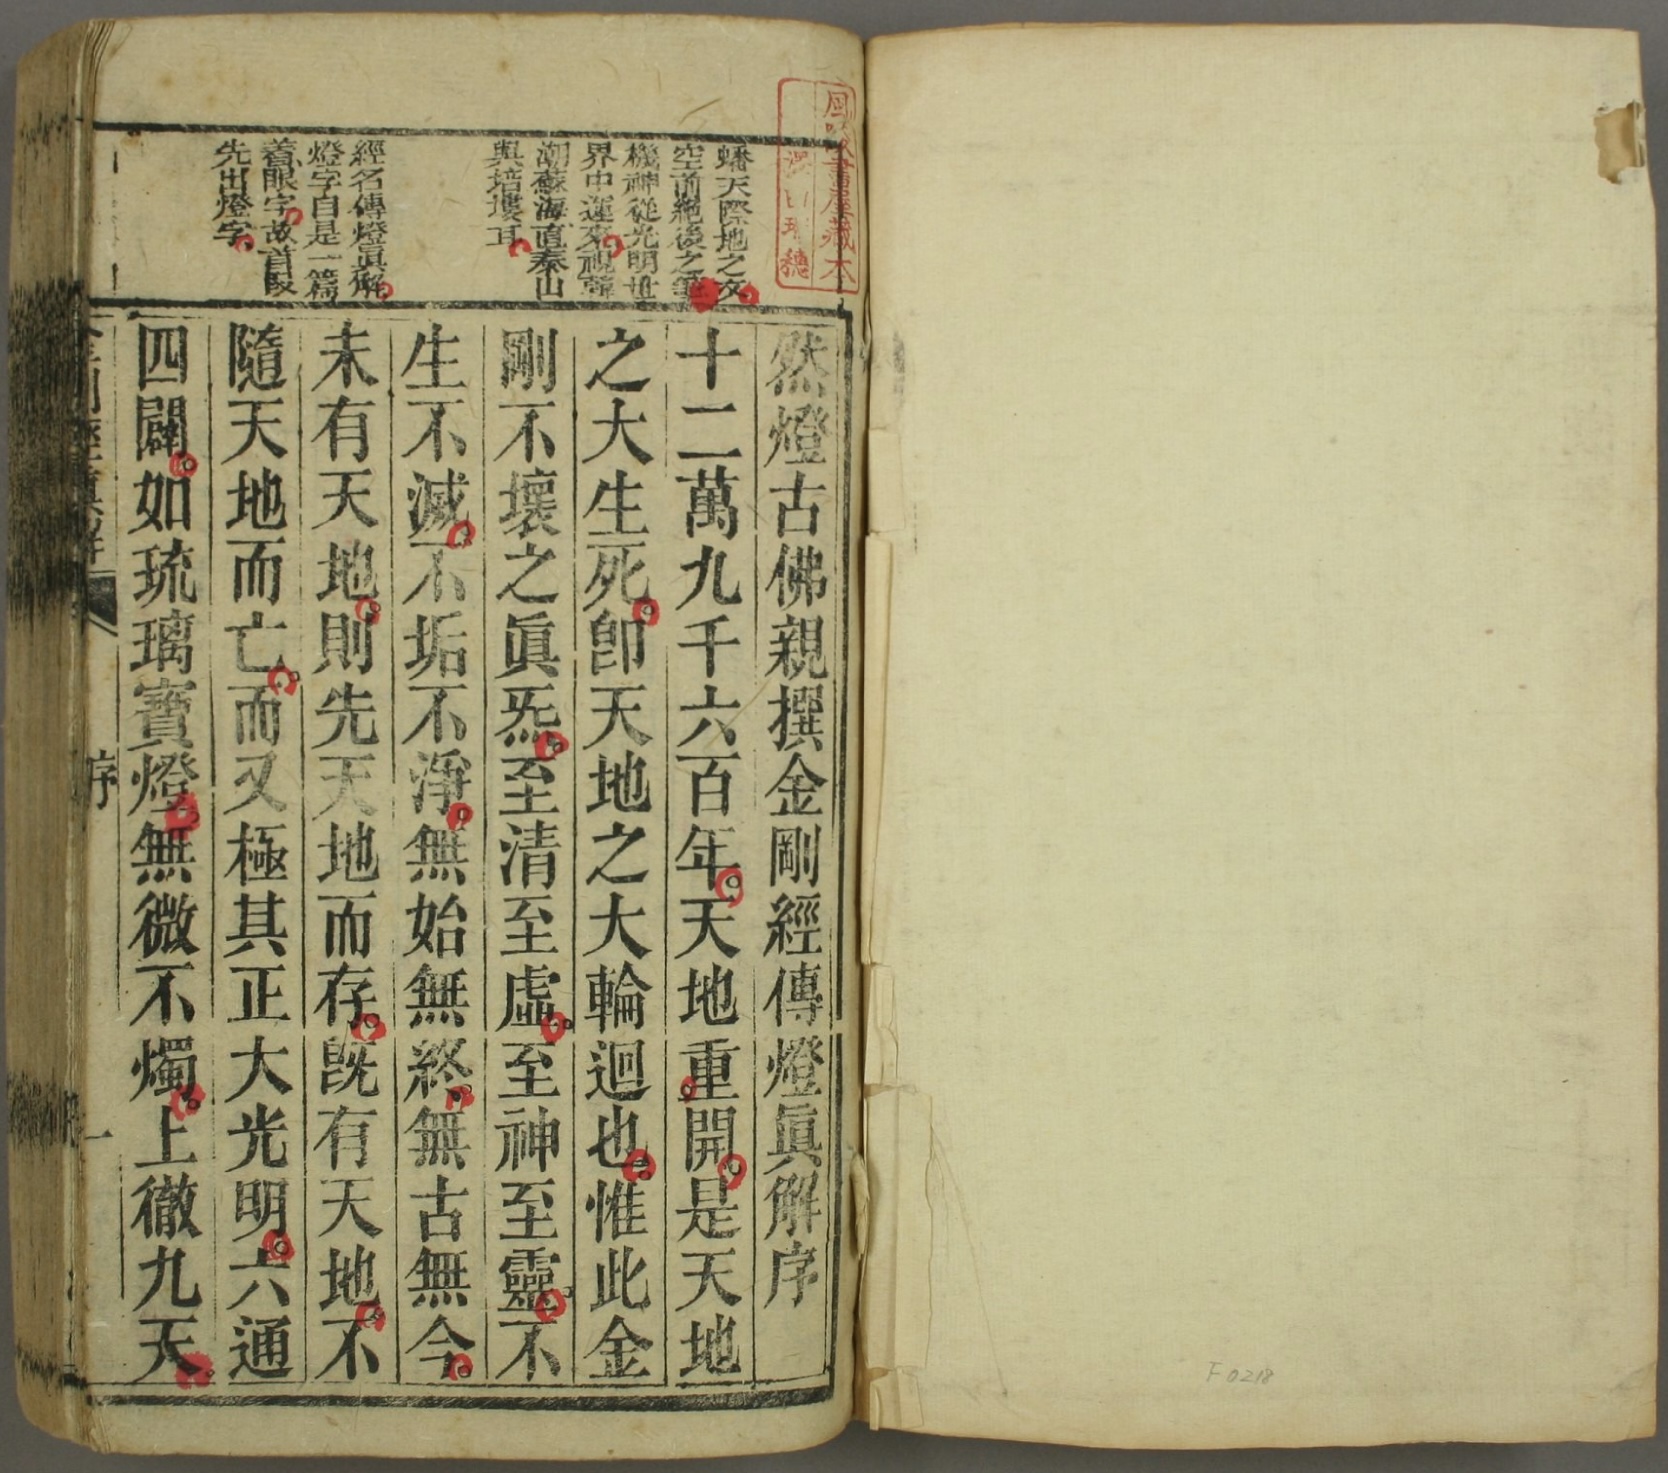 然燈古佛親撰金剛經傳燈眞解序
十二萬九千六百年。天地重開。是天地
之大生死。卽天地之大輪迴也。惟此金
剛不壞之眞炁。至清至虛。至神至靈。不
生不滅。不垢不淨。無始無終。無古無今。
未有天地。則先天地而存。旣有天地。不
隨天地而亡。而又極其正大光明。六通
四闢。如琉璃寶燈。無微不燭。上徹九天。
蟠天際地之文
空前絕後之筆
機神從光明世
界中運來視韓
潮蘇海直泰山
與培塿耳
經名傳燈眞解
燈字自是一篇
着眼字故首段
先出燈字
序
一
藏本
F0218